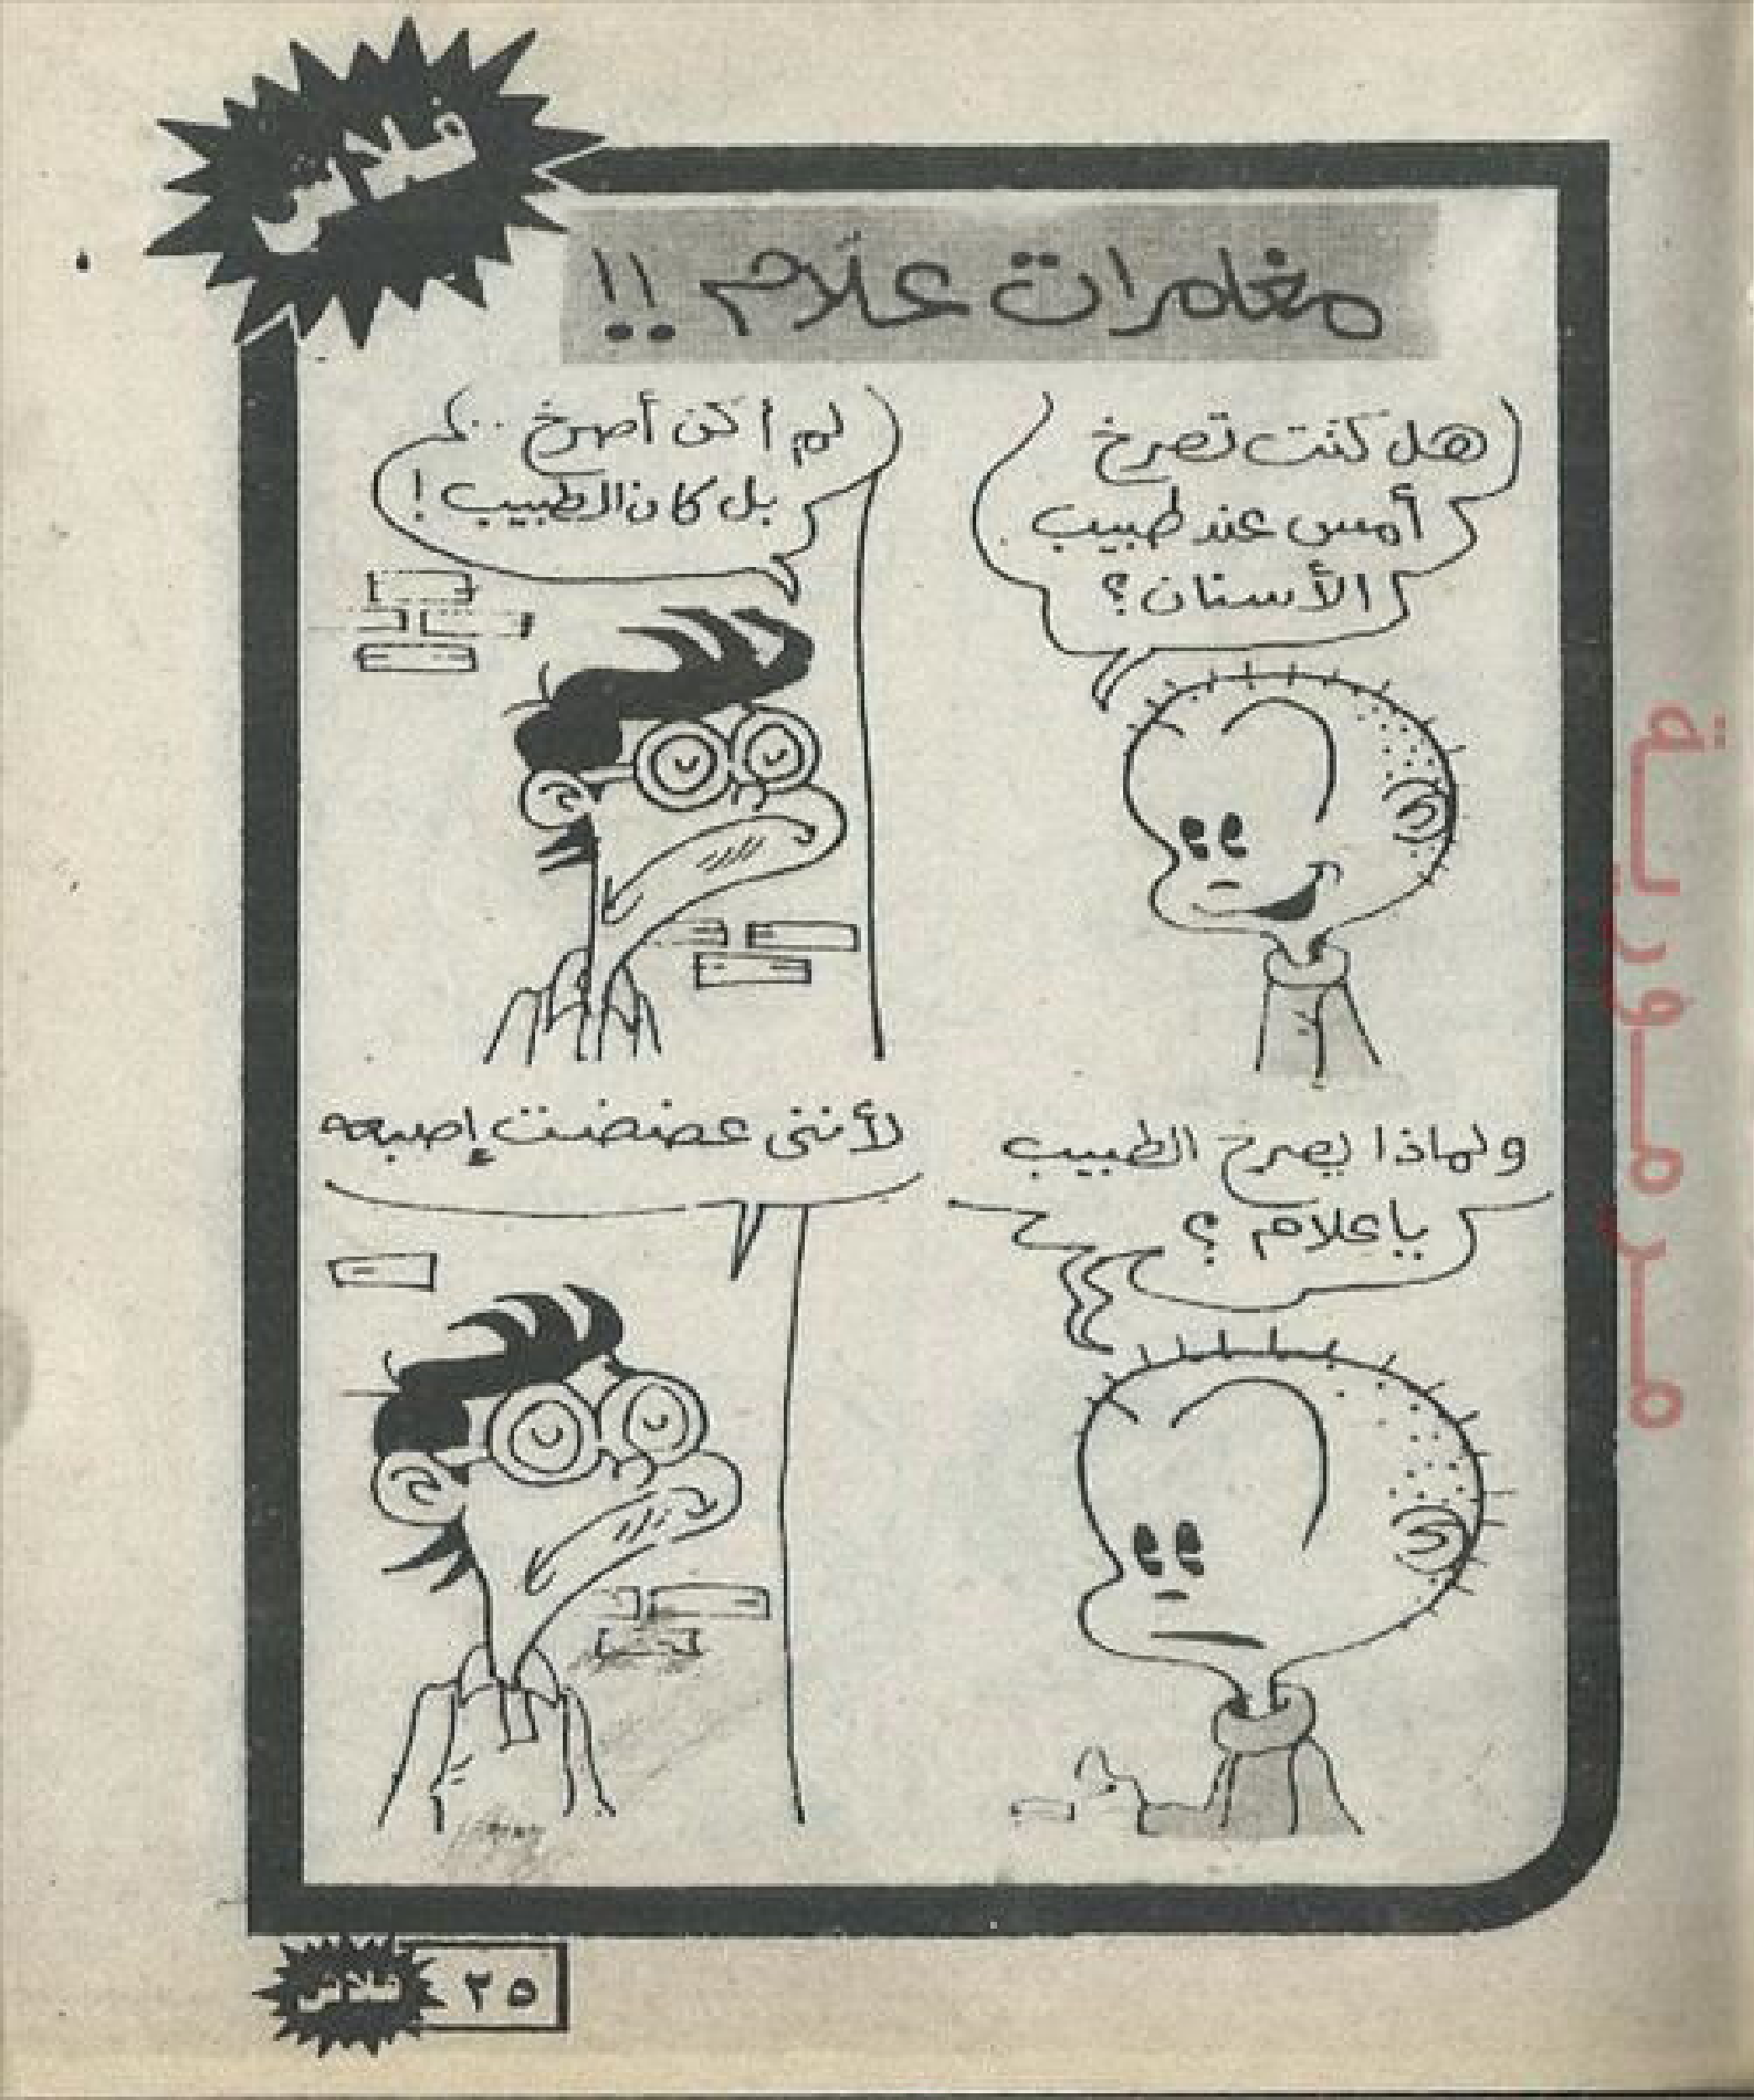 فلاش
مغامرات علّام !!
هل كنت تصرخ
أمس عند طبيب
الأسنان؟
لم أكن أصرخ ..
بل كان الطبيب !
ولماذا يصرخ الطبيب
يا علام ؟
لأننى عضضت إصبعه
فلاش
٢٥
مرمورية